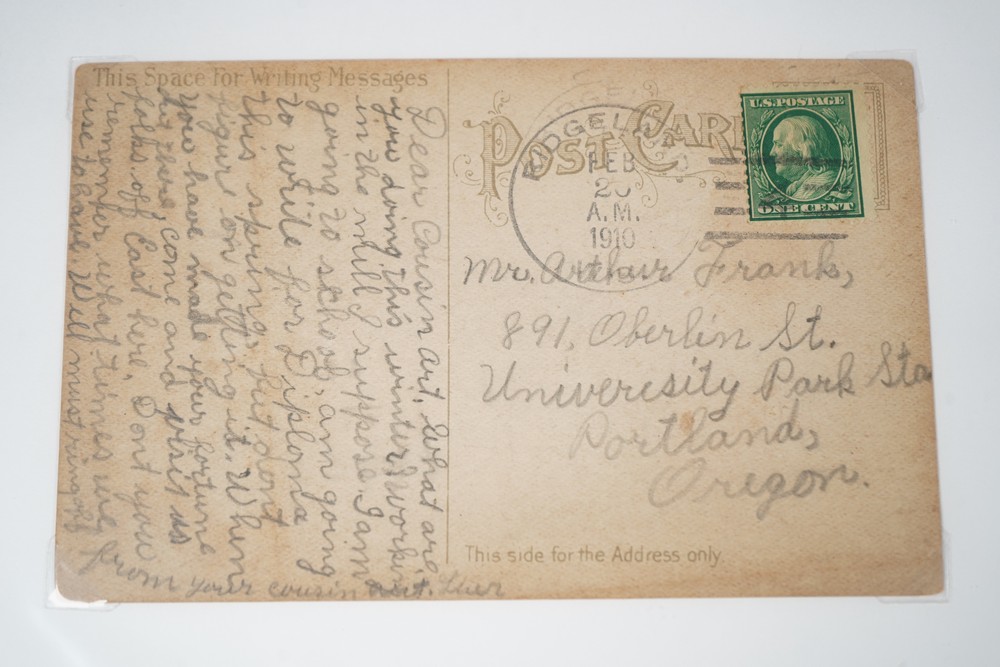 This Space For Writing Messages
Dear Cousin Art. What are
you doing this winter? Workin
in the mill I suppose. I am
going to school, am going
to write for Diploma
this spring, but dont
figure on getting it. When
you have made your fortune
out there, come and visit us
folks off East here, Dont you
remember what times we
use to have. Well must ring off
from your cousin
POST CARD
RIDGELAND
FEB
A.M.
1910
U.S. POSTAGE
ONE CENT
Mr. Arthur Frank,
891, Oberlin St.
Univeresity Park Sta
Portland,
Oregon.
This side for the Address only.